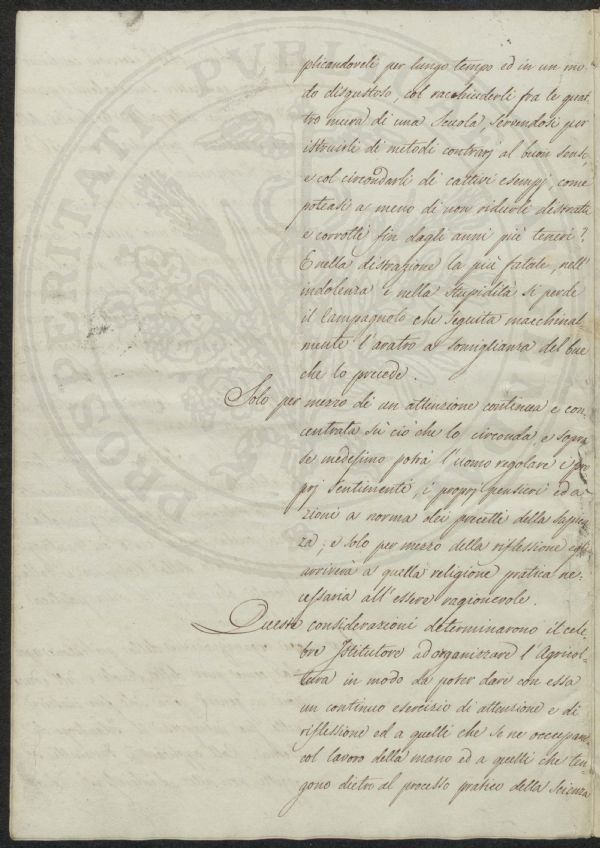 plicandoveli per lungo tempo ed in un mo-
do disgustoso, col racchiuderli fra le quat-
tro mura di una Scuola, servendosi per
istruirli di metodi contrarj al buon senso,
e col circondarli di cattivi esempj, come
poteasi a meno di non ridurli distratti
e corrotti fin dagli anni più teneri?
E nella distrazione la più fatale, nell'
indolenza e nella stupidità si perde
il Campagnolo che seguita macchinal-
mente l'aratro a somiglianza del bue
che lo precede.
Solo per mezzo di un attenzione continua e con-
centrata su ciò che lo circonda, e sopra
se medesimo potrà l'uomo regolare i pro
prj sentimenti, i proprj pensieri ed a-
zioni a norma dei precetti della sapien
za; e solo per mezzo della riflessione egli
arriverà a quella religione pratica ne-
cessaria all'essere ragionevole.
Queste considerazioni determinarono il cele-
bre Istitutore ad organizzare l'Agricol-
tura in modo da poter dare con essa
un continuo esercizio di attenzione e di
riflessione ed a quelli che se ne occupano
col lavoro della mano ed a quelli che ten-
gono dietro al processo pratico della Scienza
PROSPERITATI PVBLICAE